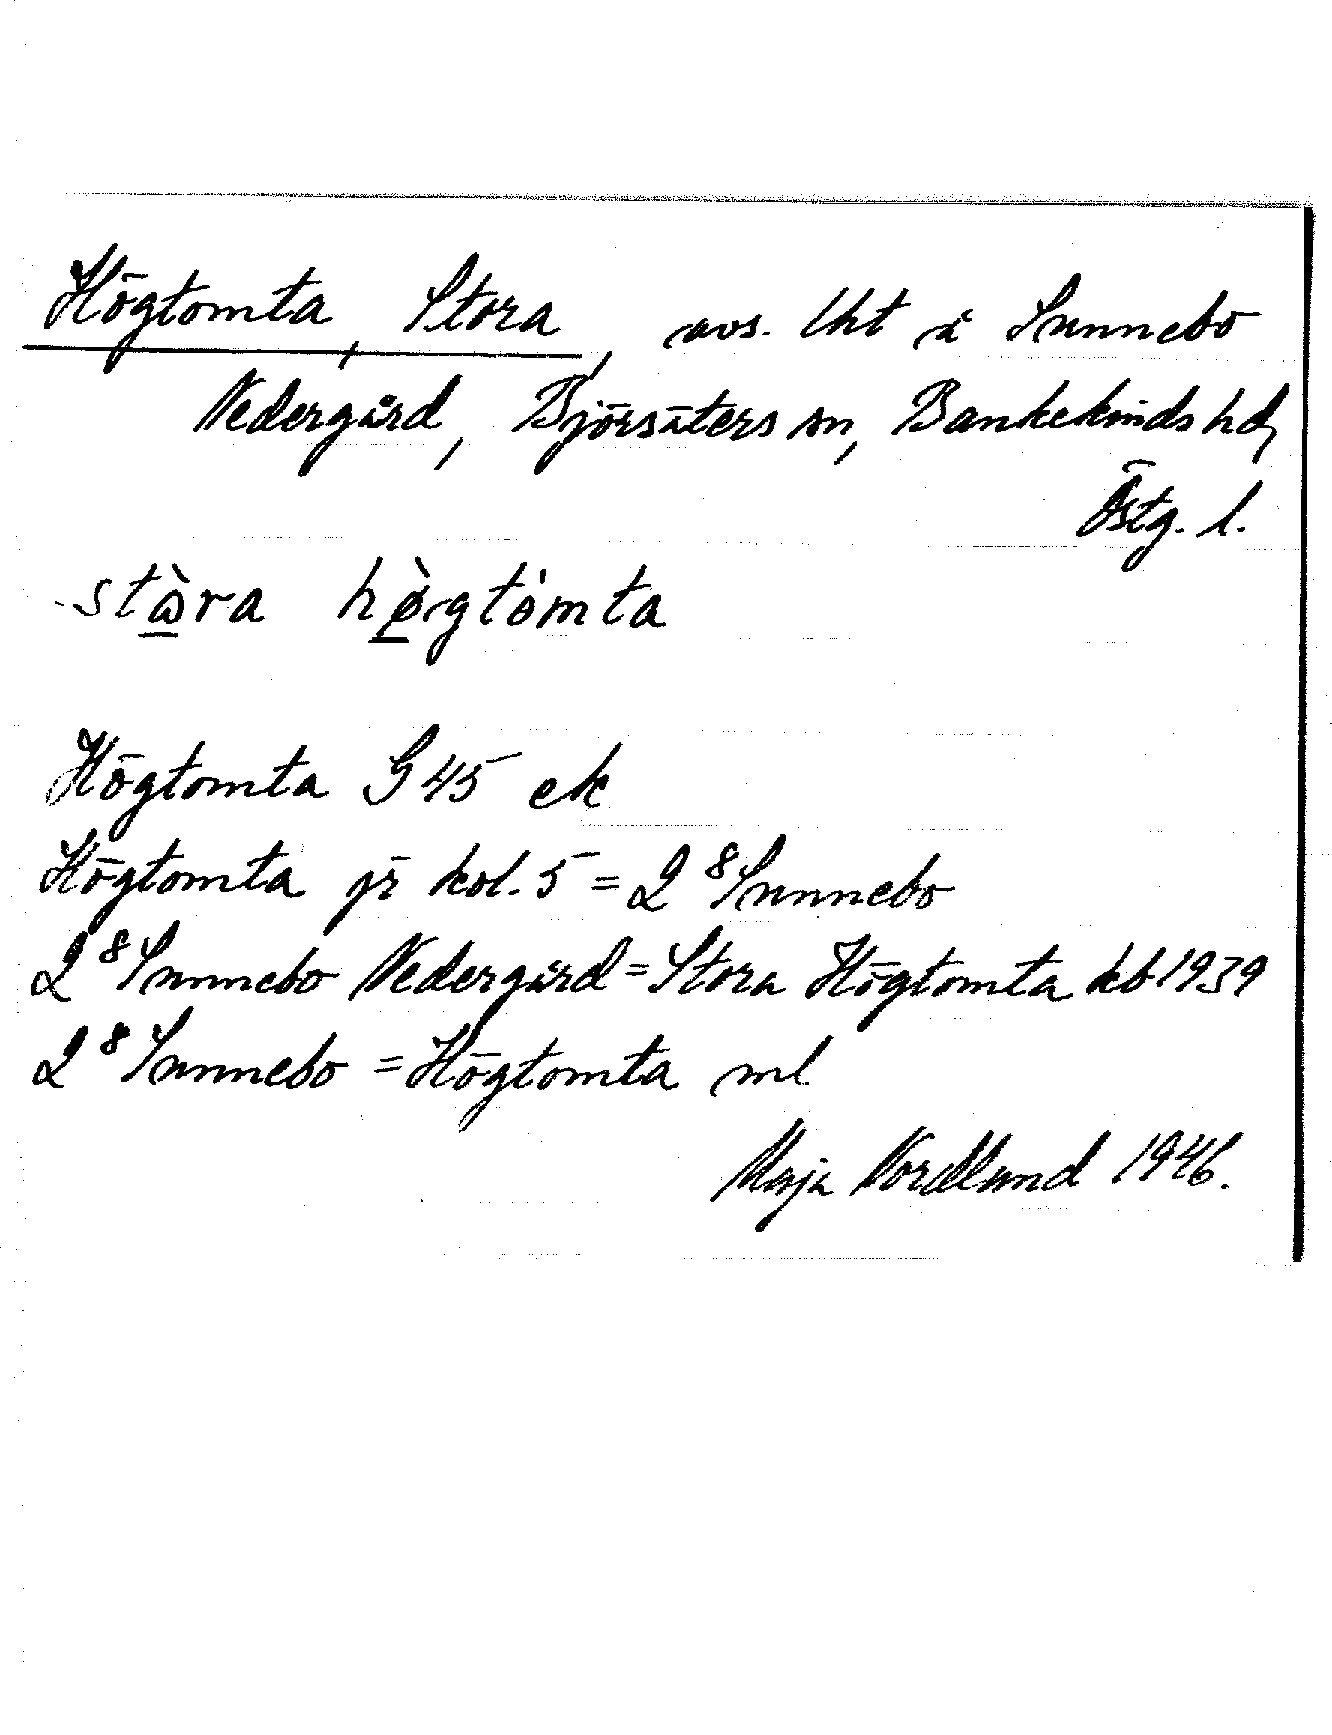 Högtomta, Stora, avs. lht å Sunnebo
Nedergård, Björsäters sn, Bankekinds hd,
Östg. l.
stὼra hø̀gtȯmta
Högtomta G 45 ek
Högtomta jr kol. 5 = 2⁸ Sunnebo
2⁸ Sunnebo Nedergård = Stora Högtomta kb 1939
2⁸ Sunnebo = Högtomta ml
Maja Nordlund 1946.